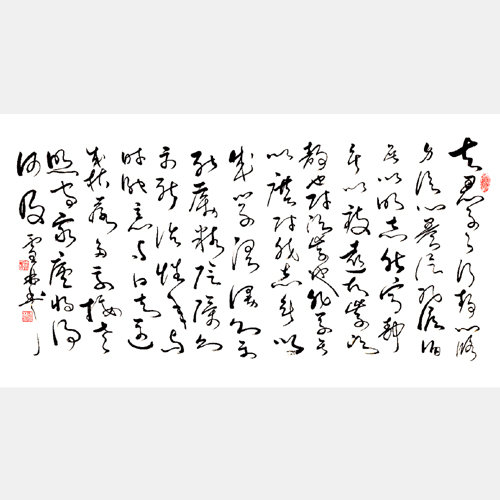 夫君子之行静以修
身俭以养德非澹泊
无以明志非宁静
无以致远夫学须
静也才须学也非学无
以广才非志无以
成学淫慢则不
能励精险躁则
不能治性年与
时驰意与日去遂
成枯落多不接世
悲守穷庐将复
何及